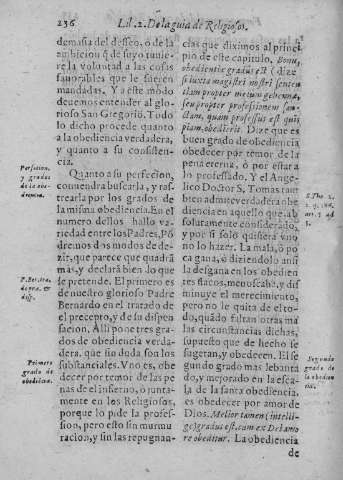 236 Lib. 2. De la guia de Religiosos.
demasia del desseo, ò de la
ambicion q̃ de suyo tuvie-
re la voluntad a las cosas
favorables que le fueren
mandadas. Y a este modo
devemos entender al glo-
rioso San Gregorio. Todo
lo dicho procede quanto
a la obediencia verdadera,
y quanto a su consisten-
cia.
Perfecion,
y grados
de la obe-
diencia.
Quanto a su perfecion,
convendra buscarla, y ras-
trearla por los grados de
la misma obediencia. En el
numero dellos hallo va-
riedad entre los Padres. Po-
dremos dos modos de de-
zir, que parece que quadrã
mas, y declarã bien lo que
se pretende. El primero es
de nuestro glorioso Padre
Bernardo en el tratado de
el precepto, y de su dispen-
sacion. Alli pone tres gra-
dos de obediencia verda-
dera, que sin doda son los
substanciales. Uno es, obe-
decer por temor de las pe-
nas de el infierno, ò junta-
mente en los Religiosos,
porque lo pide la profes-
sion, pero esto sin murmu-
racion, y sin las repugnan-
Primero
grado de
obediẽcia.
cias que diximos al princi-
pio de este capitulo. Bonus
obedientiæ gradus est (dize)
si iuxta magistri nostri senten
tiam propter metum gehennæ,
seu propter professionem san-
ctam, quam professus est quis
piam, obedierit. Dize que es
buen grado de obediencia
obedecer por temor de la
pena eterna, ò por estar a
lo professado. Y el Ange-
lico Doctor S. Tomas tam
bien admite verdadera obe
diencia con el temor, que ab
solutamente considerado,
y por si solo quisiera vno
no lo hazer. La mala, ò po
ca gana, ò diziendolo ansi
la desgana en los obedien
tes flacos, menoscaba, y dis
minuye el merecimiento,
pero no le quita de el to-
do, quãdo faltan otras ma
las circunstancias dichas,
supuesto que de hecho se
sugetan, y obedecen. El se
gundo grado mas levanta
do, y mejorado en la esca-
la de la santa obediencia,
es obedecer por amor de
Dios. Melior tamen (intelli-
ge) gradus est, cum ex Dei amo
re obeditur. La obediencia
Segundo
grado de
la obedien
cia.
de